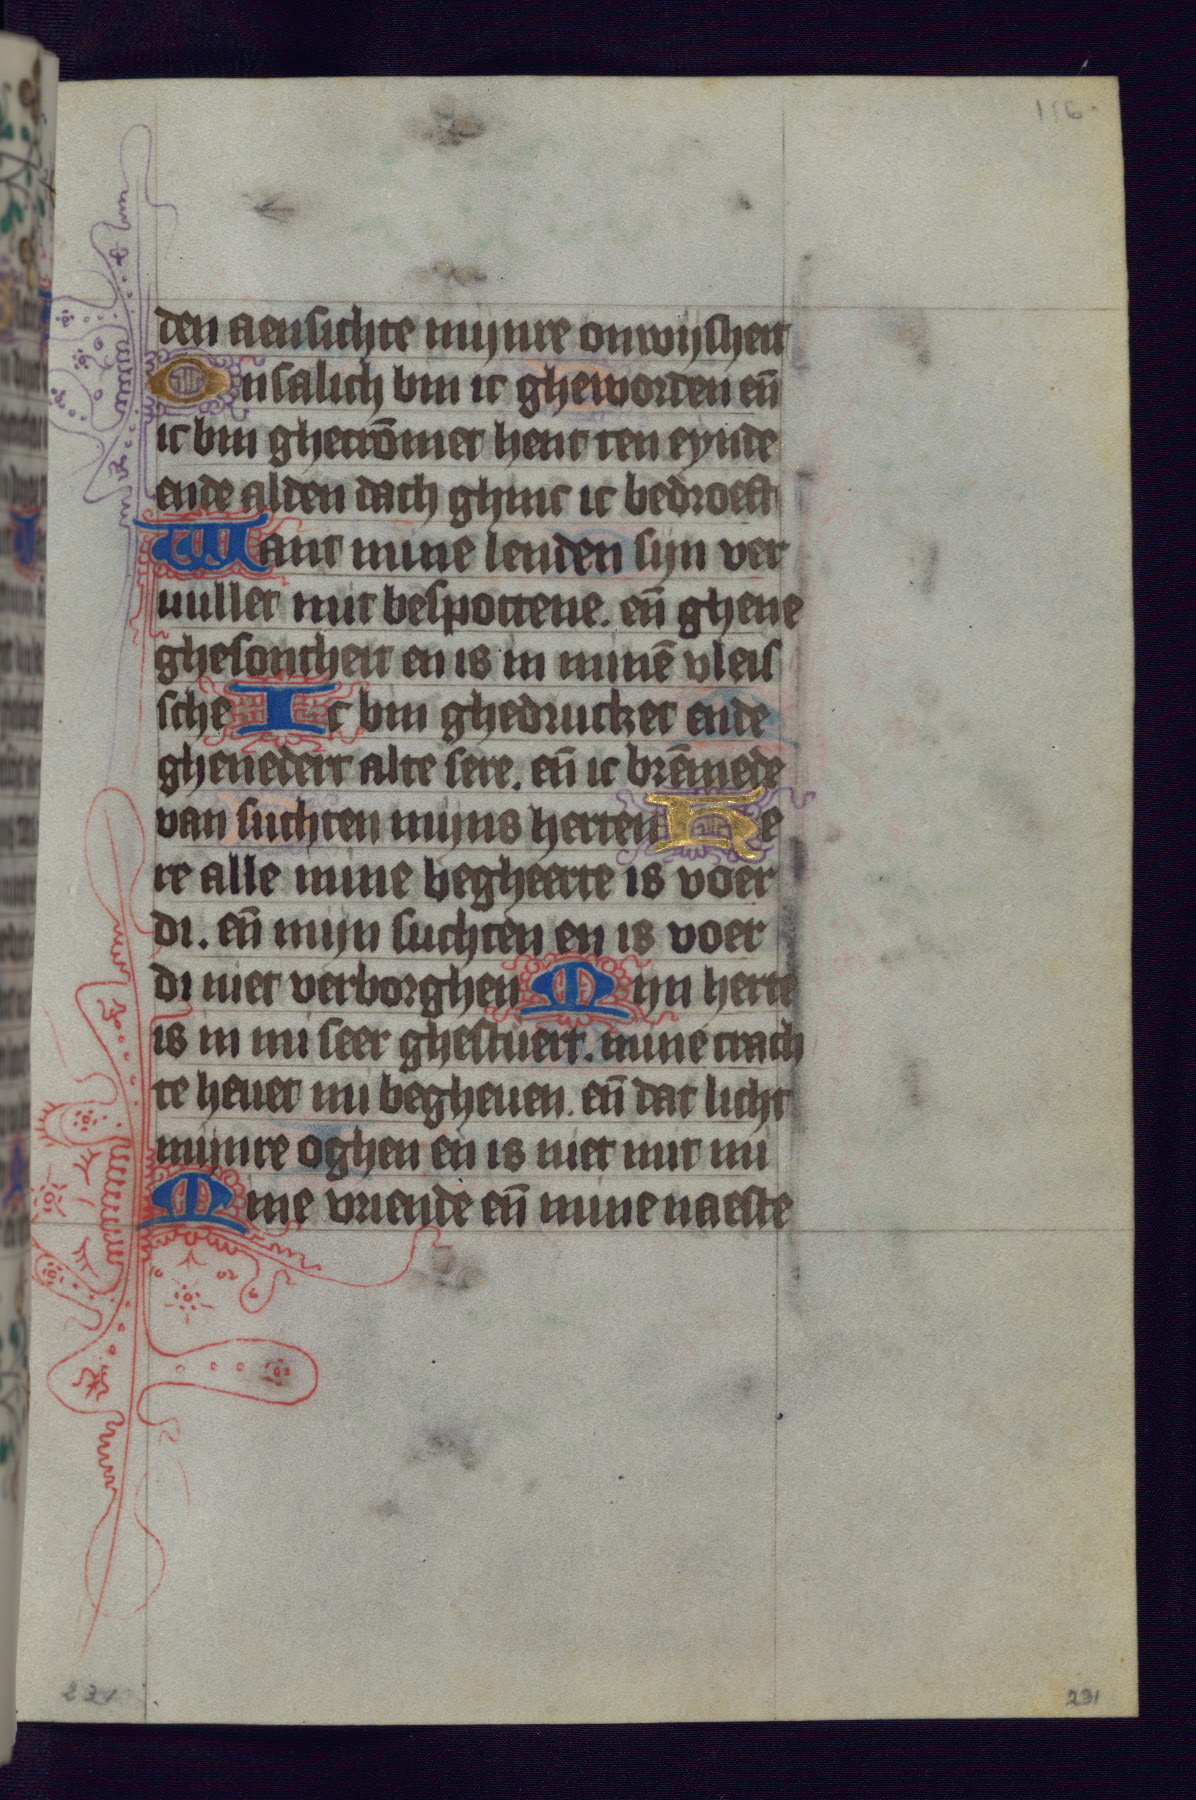 116
den aensichte mijnre onwijsheit
Onsalich bin ic gheworden en̄
ic bin ghecrōmet hent ten eynde
ende alden dach ghinc ic bedroeft
Want mine lenden sijn ver
uullet mit bespottene. en̄ ghene
ghesontheit en is in minē vleis
sche Ic bin ghedrucket ende
ghenedert alte sere. en̄ ic brēmede
van suchten mijns herten He
re alle mine begheerte is voer
di. en̄ mijn suchten en is voer
di niet verborghen Mijn herte
is in mi seer ghestuert. mine crach
te heuet mi begheuen. en̄ dat licht
mijnre oghen en is niet mit mi
Mine vriende en̄ mine naeste
231
231